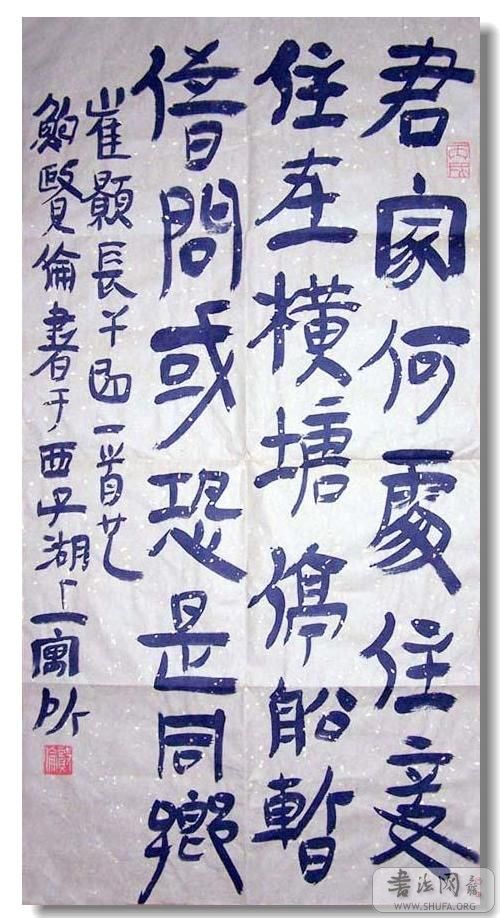 君家何處住妾
住在橫塘停船暫
借問或恐是同鄉
崔顥長干曲一首
鮑賢倫書于西子湖上寓所
书法网
WWW.SHUFA.ORG